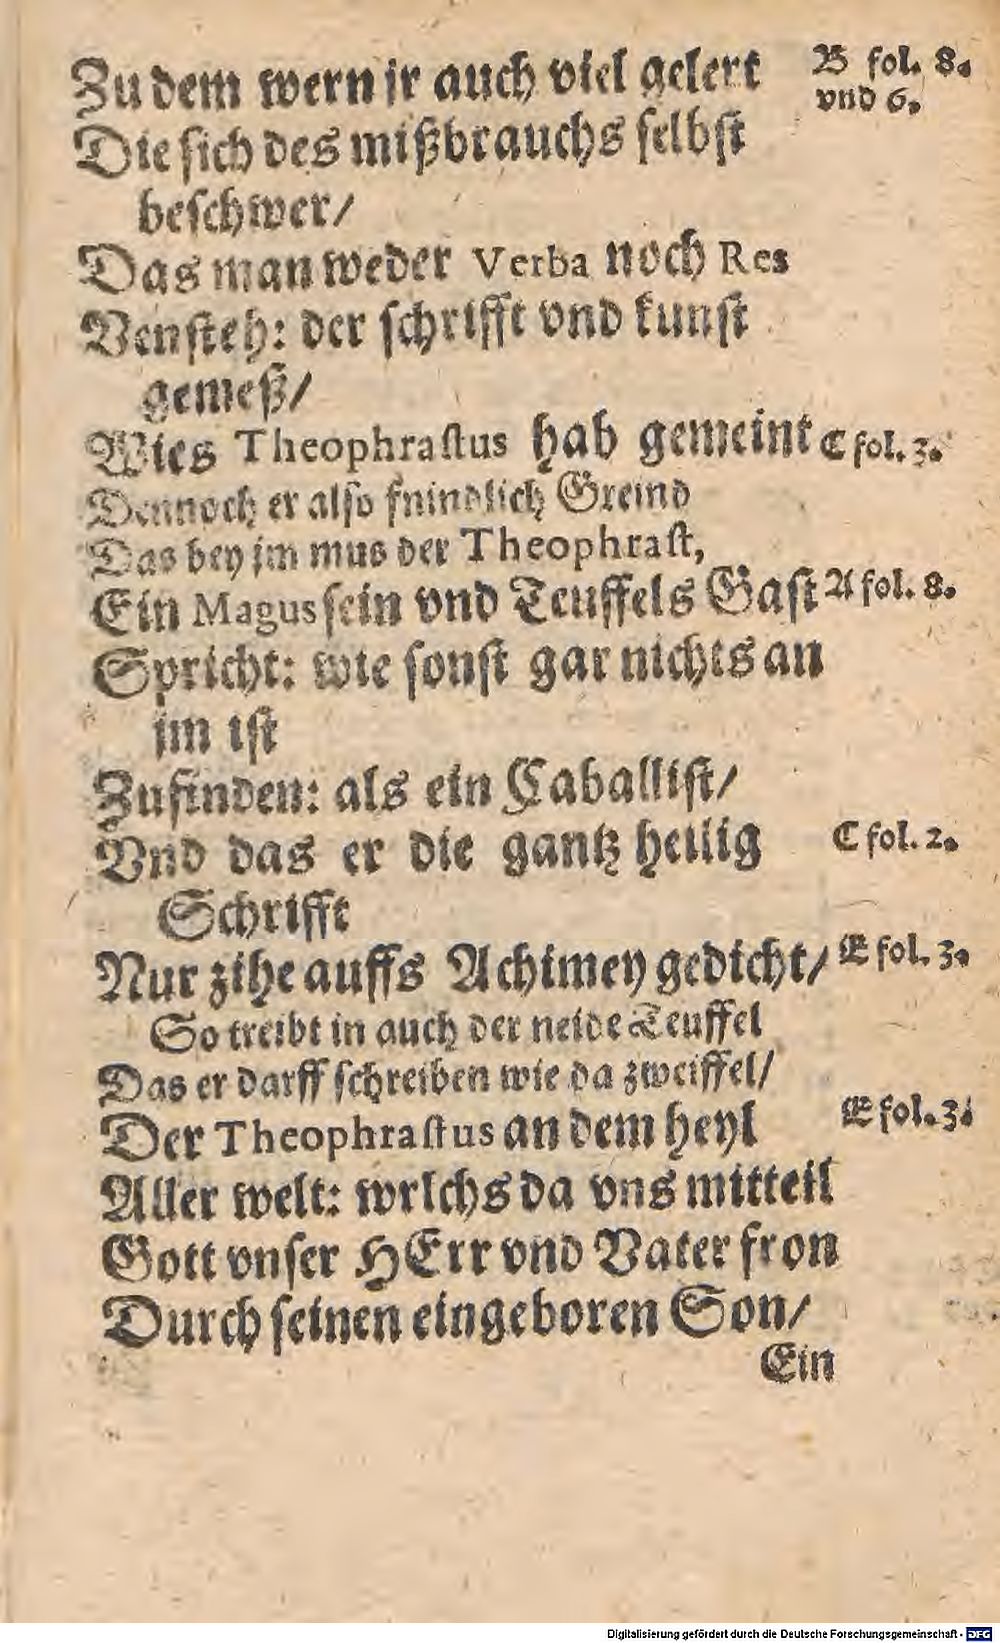 Zu dem wern ir auch viel gelert
B fol. 8.
vnd 6.
Die sich des mißbrauchs selbst
beschwer/
Das man weder Verba noch Res
Vensteh: der schrifft vnd kunst
gemeß/
Wies Theophrastus hab gemeint
C fol. 3.
Dennoch er also fnindlich Greind
Das bey jm mus der Theophrast,
Ein Magus sein vnd Teuffels Gast
A fol. 8.
Spricht: wie sonst gar nichts an
jm ist
Zufinden: als ein Caballist/
Vnd das er die gantz heilig
C fol. 2.
Schrifft
Nur zihe auffs Achimey gedicht/
E fol. 3.
So treibt in auch der neide Teuffel
Das er darff schreiben wie da zweiffel/
Der Theophrastus an dem heyl
E fol. 3.
Aller welt: wrlchs da vns mitteil
Gott vnser HErr vnd Vater fron
Durch seinen eingeboren Son/
Ein
Digitalisierung gefördert durch die Deutsche Forschungsgemeinschaft - DFG